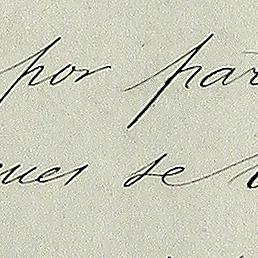 por par
ques se